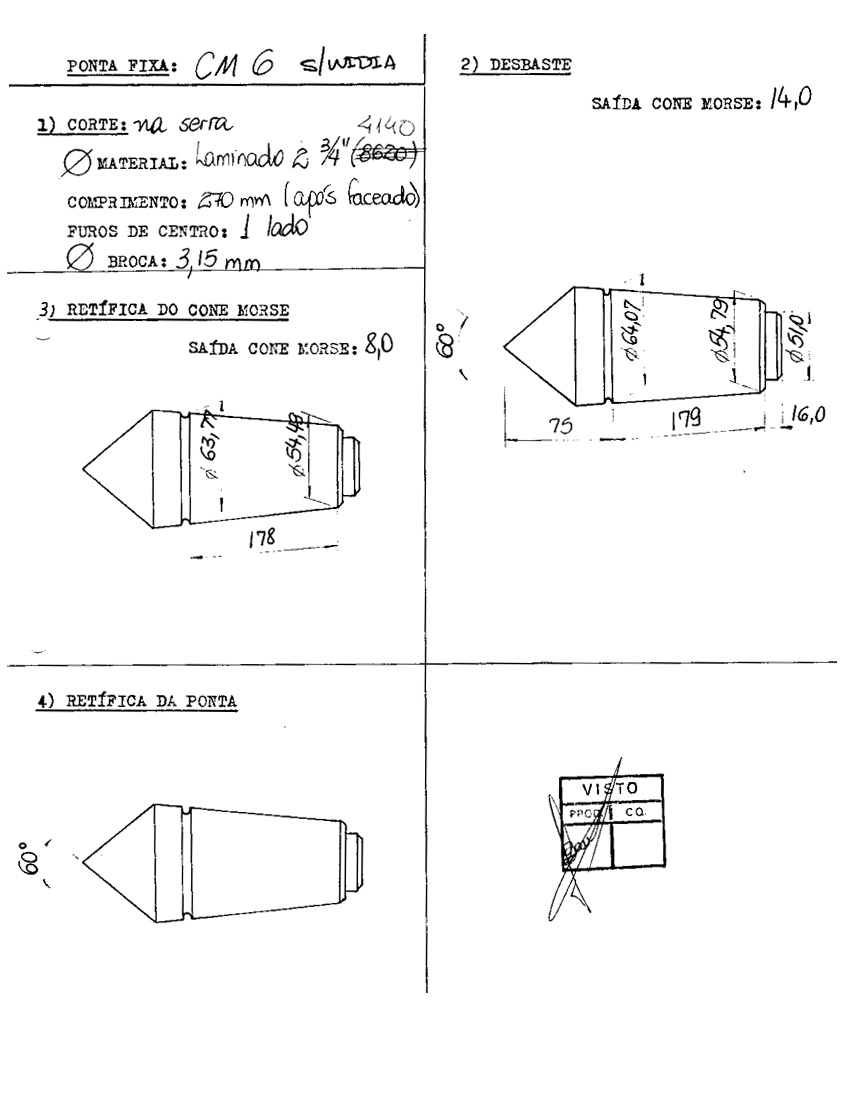 PONTA FIXA: CM 6 s/WIDIA
1) CORTE: na serra
4140
Ø MATERIAL: Laminado 2 3/4" (8620)
COMPRIMENTO: 270 mm (após faceado)
FUROS DE CENTRO: 1 lado
Ø BROCA: 3,15 mm
2) DESBASTE
SAÍDA CONE MORSE: 14,0
60°
1
ø64,07
ø54,79
ø51,0
75
179
16,0
3) RETÍFICA DO CONE MORSE
SAÍDA CONE MORSE: 8,0
1
ø 63,77
ø54,48
178
4) RETÍFICA DA PONTA
60°
VISTO
PROD. CQ.